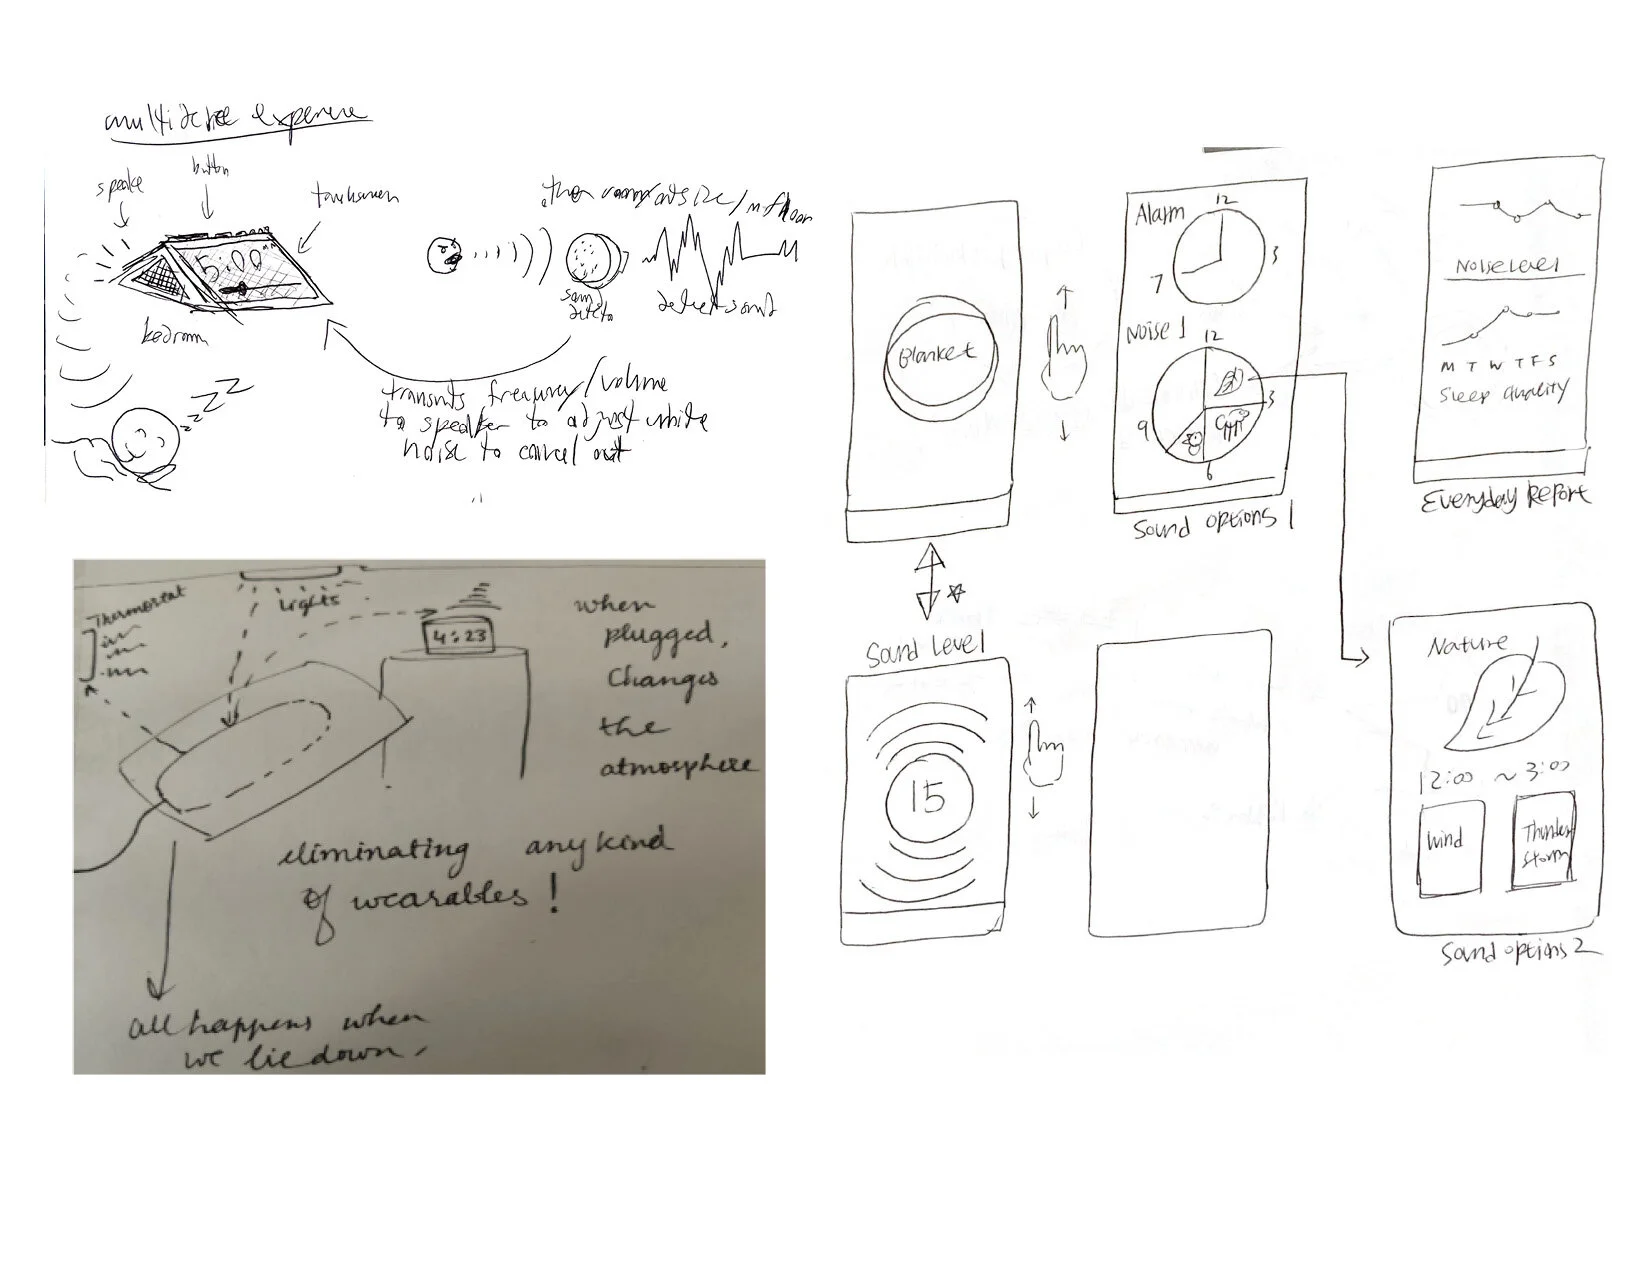 button
speake
touchscreen
5:00
bedroom
detect sound
transmits frequency/volume
to speaker to adjust white
noise to cancel out
Thermostat
Lights
4:23
when
plugged,
Changes
the
atmosphere
eliminating any kind
of wearables!
all happens when
we lie down.
Blanket
Sound Level
15
Alarm
12
3
7
Noise 1
12
3
9
6
Sound options 1
Noise Level
M T W T F S
Sleep Quality
Everyday Report
Nature
12:00 ~ 3:00
Wind
Thunder
Storm
Sound options 2